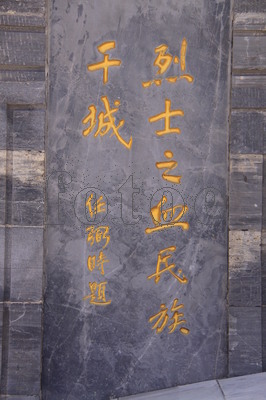 烈士之血民族
干城
任弼时题